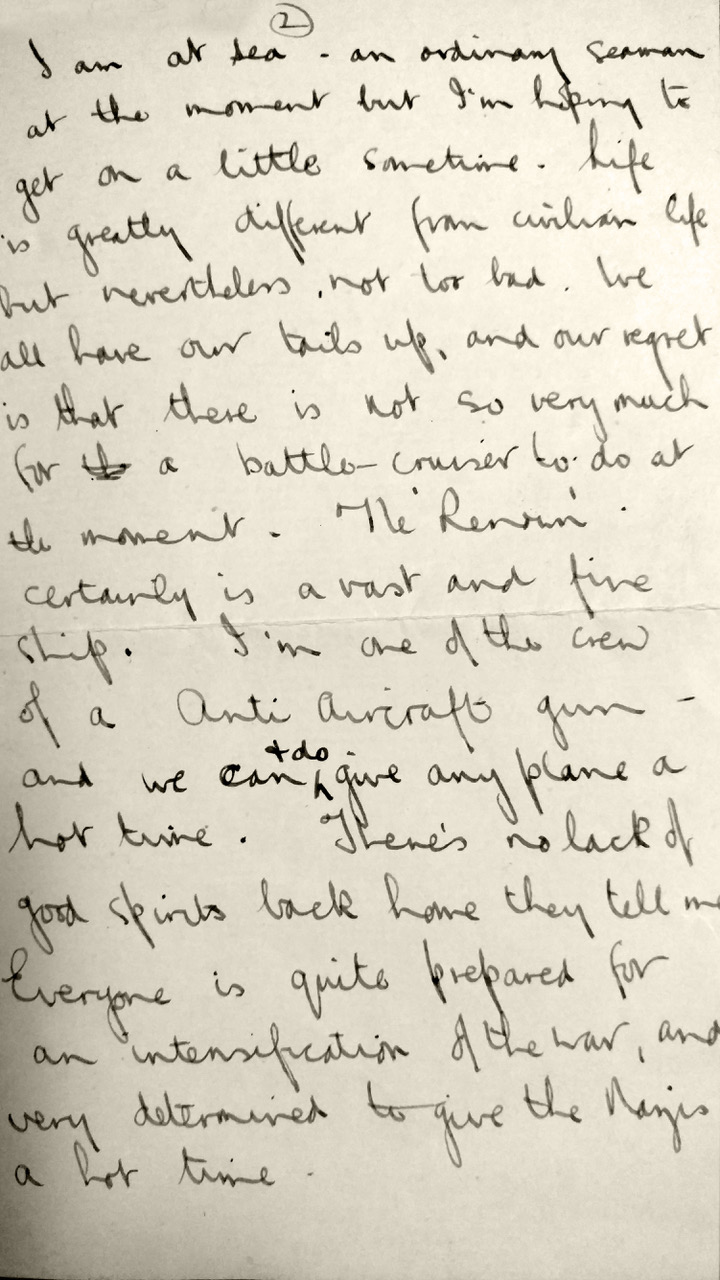 2
I am at sea - an ordinary seaman
at the moment but I'm hoping to
get on a little sometime. Life
is greatly different from civilian life
but nevertheless, not too bad. We
all have our tails up, and our regret
is that there is not so very much
for the a battle-cruiser to do at
the moment. 'The
certainly is a vast and fine
ship. I'm one of the crew
of a Anti Aircraft gun -
and we can + do give any plane a
hot time. There's no lack of
good spirits back home they tell me
Everyone is quite prepared for
an intensification of the war, and
very determined to give the Nazis
a hot time.